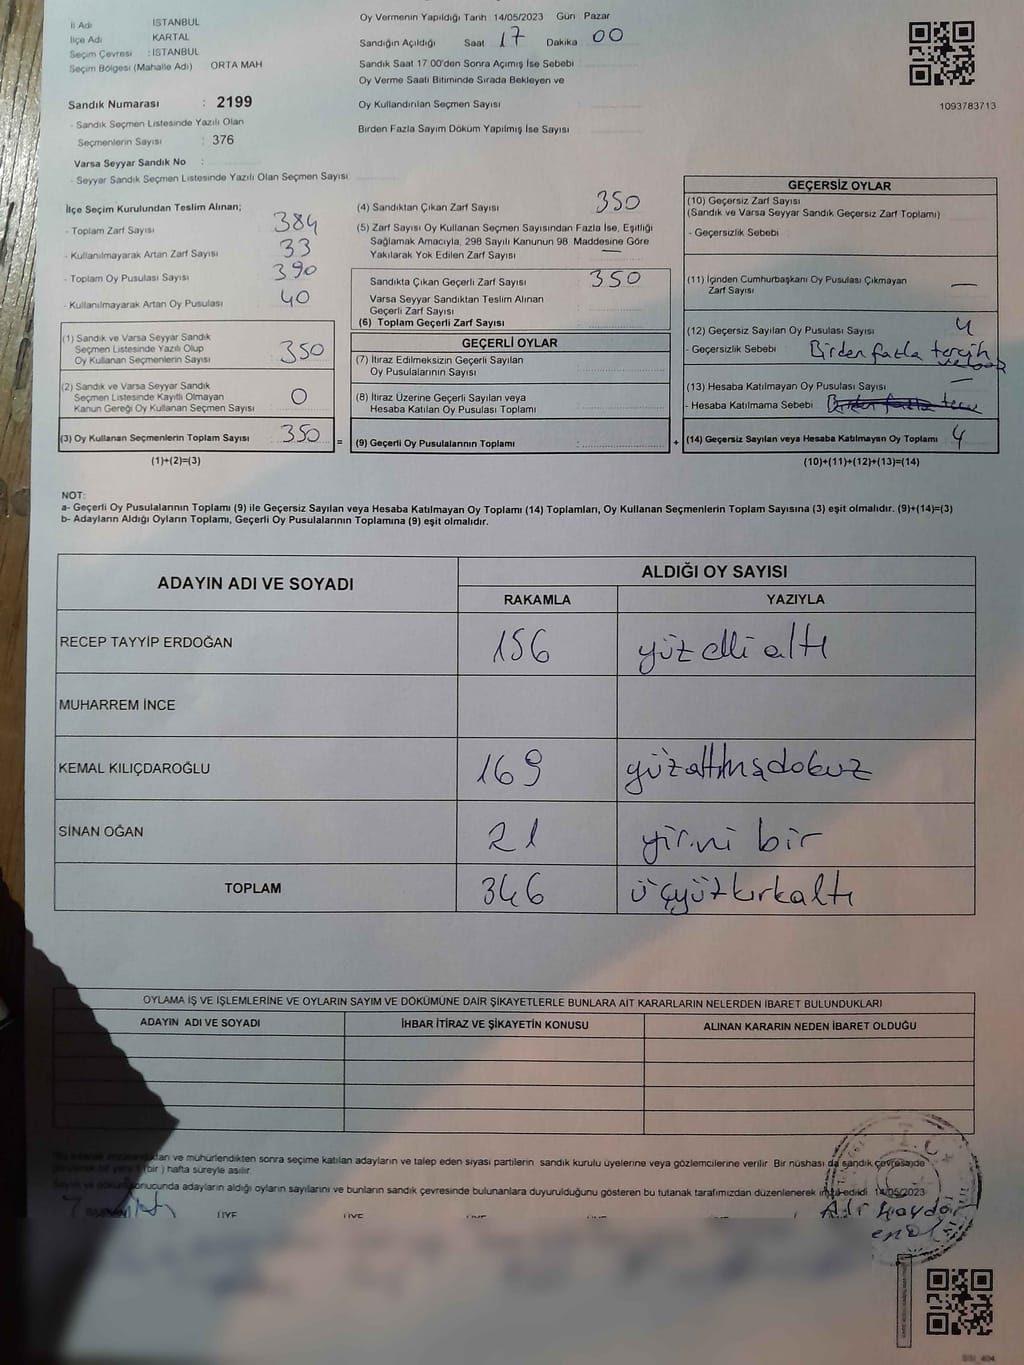 İl Adı İSTANBUL
İlçe Adı KARTAL
Seçim Çevresi : İSTANBUL
Seçim Bölgesi (Mahalle Adı) ORTA MAH
Sandık Numarası : 2199
- Sandık Seçmen Listesinde Yazılı Olan
Seçmenlerin Sayısı : 376
Varsa Seyyar Sandık No :
- Seyyar Sandık Seçmen Listesinde Yazılı Olan Seçmen Sayısı
Oy Vermenin Yapıldığı Tarih 14/05/2023 Gün Pazar
Sandığın Açıldığı Saat 17 Dakika 00
Sandık Saat 17:00'den Sonra Açımış İse Sebebi
Oy Verme Saati Bitiminde Sırada Bekleyen ve
Oy Kullandırılan Seçmen Sayısı
Birden Fazla Sayım Döküm Yapılmış İse Sayısı
1093783713
İlçe Seçim Kurulundan Teslim Alınan;
- Toplam Zarf Sayısı 384
- Kullanılmayarak Artan Zarf Sayısı 33
- Toplam Oy Pusulası Sayısı 390
- Kullanılmayarak Artan Oy Pusulası 40
(1) Sandık ve Varsa Seyyar Sandık
Seçmen Listesinde Yazılı Olup
Oy Kullanan Seçmenlerin Sayısı 350
(2) Sandık ve Varsa Seyyar Sandık
Seçmen Listesinde Kayıtlı Olmayan
Kanun Gereği Oy Kullanan Seçmen Sayısı 0
(3) Oy Kullanan Seçmenlerin Toplam Sayısı 350 =
(1)+(2)=(3)
(4) Sandıktan Çıkan Zarf Sayısı 350
(5) Zarf Sayısı Oy Kullanan Seçmen Sayısından Fazla İse, Eşitliği
Sağlamak Amacıyla, 298 Sayılı Kanunun 98. Maddesine Göre
Yakılarak Yok Edilen Zarf Sayısı —
Sandıkta Çıkan Geçerli Zarf Sayısı 350
Varsa Seyyar Sandıktan Teslim Alınan
Geçerli Zarf Sayısı
(6) Toplam Geçerli Zarf Sayısı
GEÇERLİ OYLAR
(7) İtiraz Edilmeksizin Geçerli Sayılan
Oy Pusulalarının Sayısı
(8) İtiraz Üzerine Geçerli Sayılan veya
Hesaba Katılan Oy Pusulası Toplamı
(9) Geçerli Oy Pusulalarının Toplamı +
GEÇERSİZ OYLAR
(10) Geçersiz Zarf Sayısı
(Sandık ve Varsa Seyyar Sandık Geçersiz Zarf Toplamı)
- Geçersizlik Sebebi
(11) İçinden Cumhurbaşkanı Oy Pusulası Çıkmayan
Zarf Sayısı —
(12) Geçersiz Sayılan Oy Pusulası Sayısı 4
- Geçersizlik Sebebi Birden fazla tercih
(13) Hesaba Katılmayan Oy Pusulası Sayısı —
- Hesaba Katılmama Sebebi
(14) Geçersiz Sayılan veya Hesaba Katılmayan Oy Toplamı 4
(10)+(11)+(12)+(13)=(14)
NOT:
a- Geçerli Oy Pusulalarının Toplamı (9) ile Geçersiz Sayılan veya Hesaba Katılmayan Oy Toplamı (14) Toplamları, Oy Kullanan Seçmenlerin Toplam Sayısına (3) eşit olmalıdır. (9)+(14)=(3)
b- Adayların Aldığı Oyların Toplamı, Geçerli Oy Pusulalarının Toplamına (9) eşit olmalıdır.
ADAYIN ADI VE SOYADI ALDIĞI OY SAYISI
RAKAMLA YAZIYLA
RECEP TAYYİP ERDOĞAN 156 yüz elli altı
MUHARREM İNCE
KEMAL KILIÇDAROĞLU 169 yüzaltmışdokuz
SİNAN OĞAN 21 yirmi bir
TOPLAM 346 üçyüzkırkaltı
OYLAMA İŞ VE İŞLEMLERİNE VE OYLARIN SAYIM VE DÖKÜMÜNE DAİR ŞİKAYETLERLE BUNLARA AİT KARARLARIN NELERDEN İBARET BULUNDUKLARI
ADAYIN ADI VE SOYADI İHBAR İTİRAZ VE ŞİKAYETİN KONUSU ALINAN KARARIN NEDEN İBARET OLDUĞU
ve mühürlendikten sonra seçime katılan adayların ve talep eden siyasi partilerin sandık kurulu üyelerine veya gözlemcilerine verilir. Bir nüshası da sandık çevresinde
(bir) hafta süreyle asılır.
sonucunda adayların aldığı oyların sayılarını ve bunların sandık çevresinde bulunanlara duyurulduğunu gösteren bu tutanak tarafımızdan düzenlenerek imza edildi 14/05/2023
ÜYE ÜYE ÜYE ÜYE
Ali Haydar